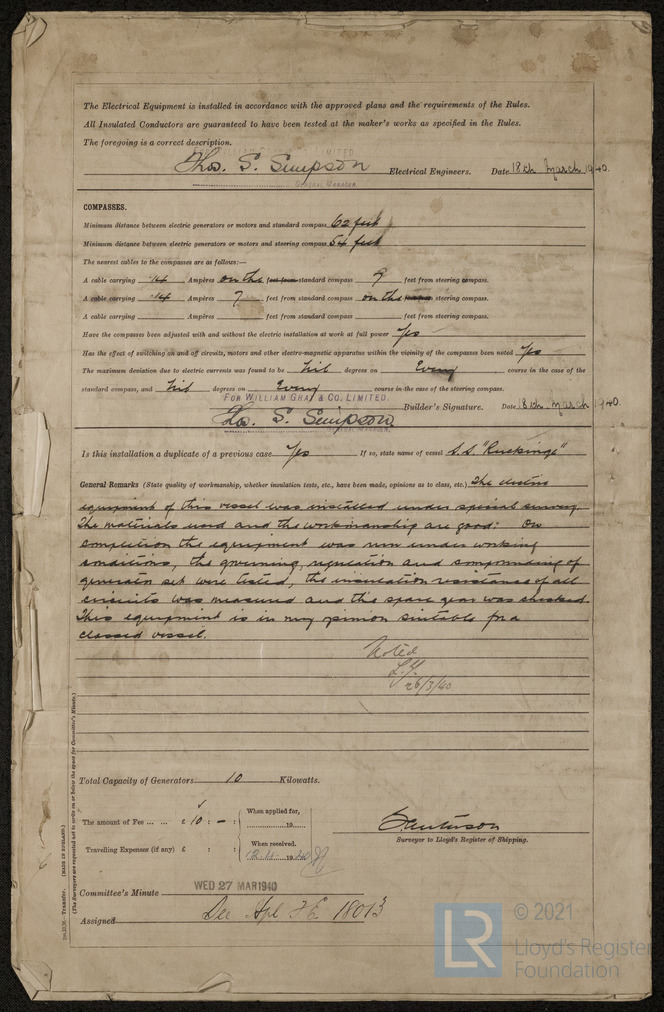 The Electrical Equipment is installed in accordance with the approved plans and the requirements of the Rules.
All Insulated Conductors are guaranteed to have been tested at the maker's works as specified in the Rules.
The foregoing is a correct description.
LIMITED
Thos. S. Simpson Electrical Engineers. Date 18th March 1940.
General Manager.
COMPASSES.
Minimum distance between electric generators or motors and standard compass 62 feet
Minimum distance between electric generators or motors and steering compass 54 feet
The nearest cables to the compasses are as follows:—
A cable carrying .14 Ampères on the feet from standard compass 9 feet from steering compass.
A cable carrying .14 Ampères 7 feet from standard compass on the steering compass.
A cable carrying Ampères feet from standard compass feet from steering compass.
Have the compasses been adjusted with and without the electric installation at work at full power Yes
Has the effect of switching on and off circuits, motors and other electro-magnetic apparatus within the vicinity of the compasses been noted Yes
The maximum deviation due to electric currents was found to be Nil degrees on Every course in the case of the
standard compass, and Nil degrees on Every course in the case of the steering compass.
FOR WILLIAM GRAY & CO. LIMITED.
Thos. S. Simpson Builder's Signature. Date 18th March 1940.
GENERAL MANAGER.
Is this installation a duplicate of a previous case Yes If so, state name of vessel S.S. "Ruckinge"
General Remarks (State quality of workmanship, whether insulation tests, etc., have been made, opinions as to class, etc.) The electric
equipment of this vessel was installed under special survey.
The materials used and the workmanship are good. On
completion the equipment was run under working
conditions, the governing, regulation and compounding of
generator set were tested, the insulation resistance of all
circuits was measured and the spare gear was checked.
This equipment is in my opinion suitable for a
classed vessel.
Noted
26/3/40
Total Capacity of Generators 10 Kilowatts.
The amount of Fee ... ... £ 10 : – : When applied for,
19
Travelling Expenses (if any) £ : : When received.
1940
Surveyor to Lloyd's Register of Shipping.
Committee's Minute WED 27 MAR 1940
Assigned See Apl F.E. 18013
(The Surveyors are requested not to write on or below the space for Committee's Minute.)
Transfer. (MADE IN ENGLAND.)
LR © 2021
Lloyd's Register
Foundation